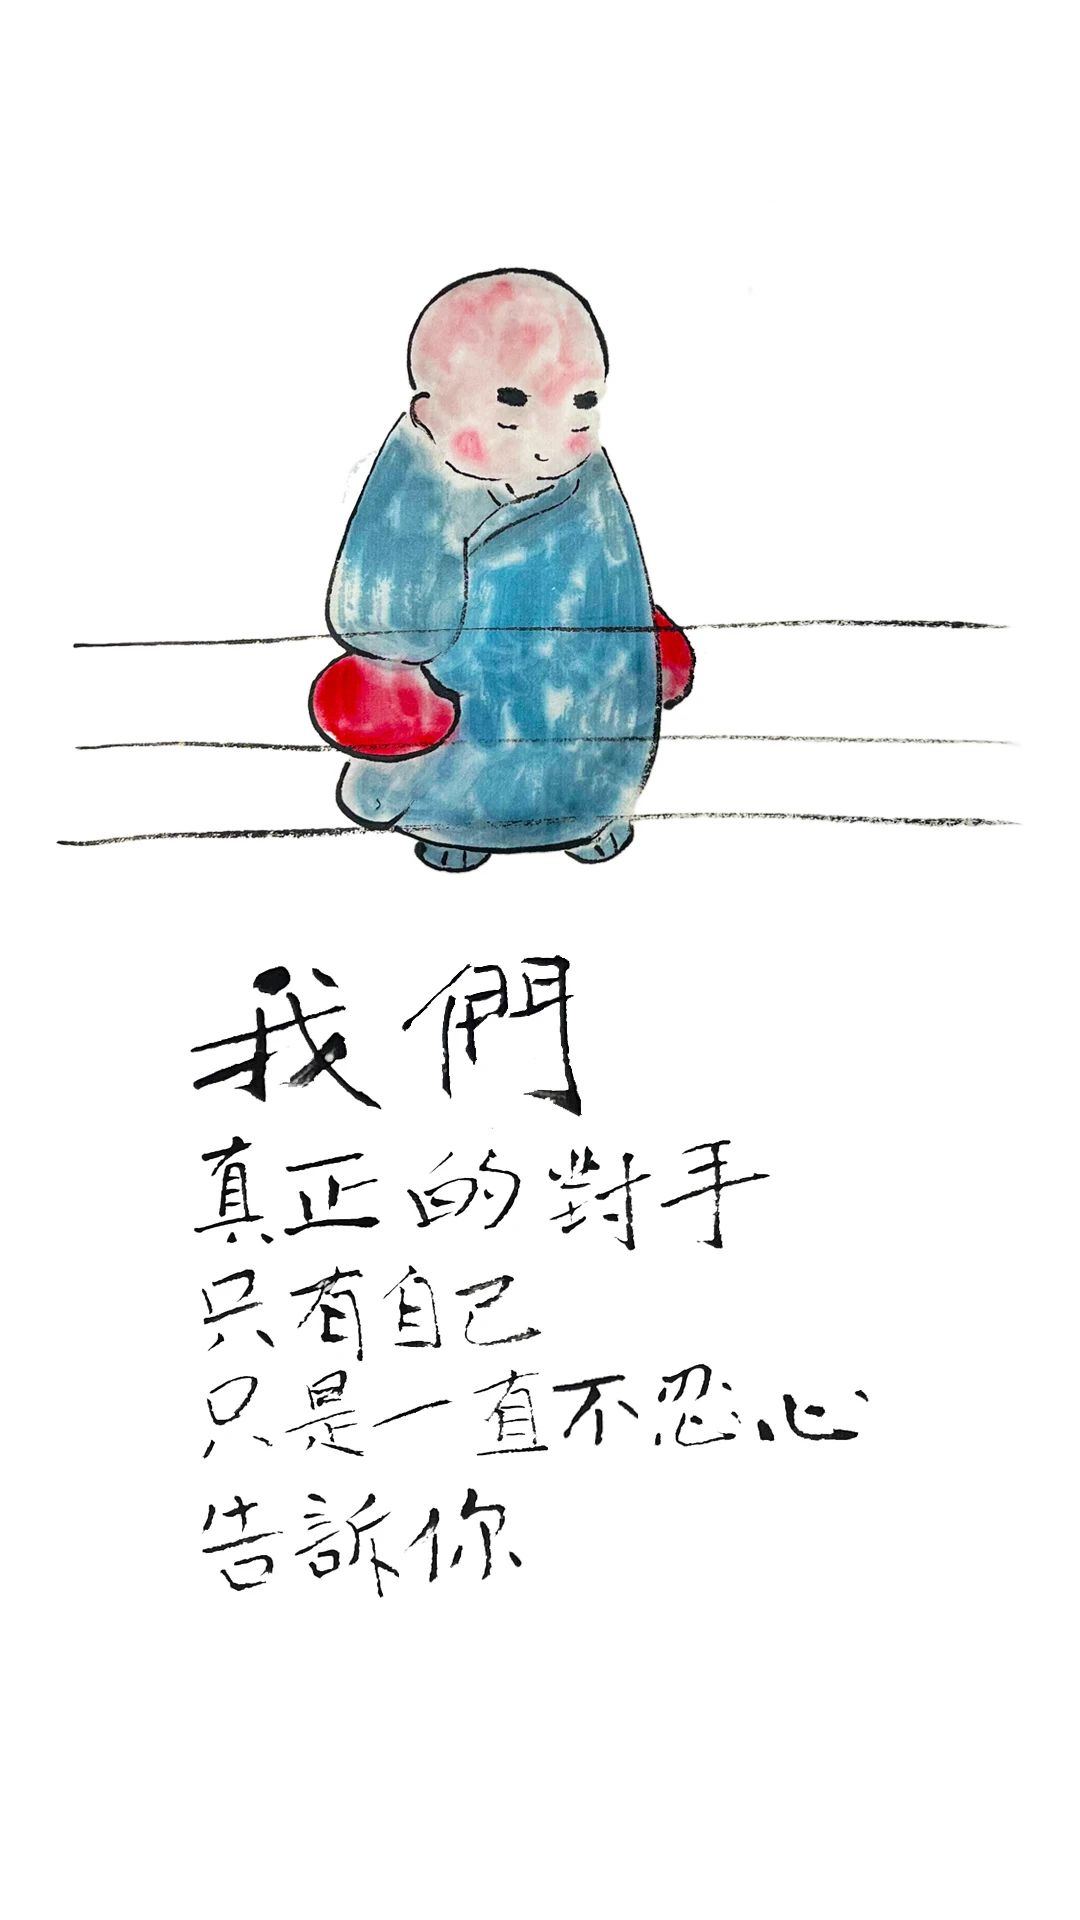 我們
真正的對手
只有自己
只是一直不忍心
告訴你